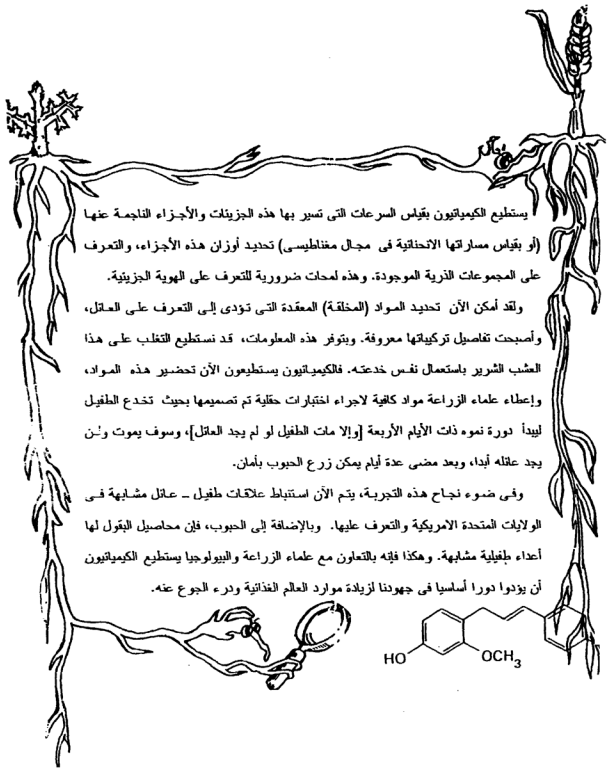 يستطيع الكيميائيون بقياس السرعات التى تسير بها هذه الجزيئات والأجزاء الناجمة عنها
(أو بقياس مساراتها الانحنائية فى مجال مغناطيسى) تحديد أوزان هذه الأجزاء، والتعرف
على المجموعات الذرية الموجودة. وهذه لمحات ضرورية للتعرف على الهوية الجزيئية.
ولقد أمكن الآن تحديد المواد (المخلقة) المعقدة التى تؤدى إلى التعرف على العائل،
وأصبحت تفاصيل تركيباتها معروفة. وبتوفر هذه المعلومات، قد نستطيع التغلب على هذا
العشب الشرير باستعمال نفس خدعته. فالكيميائيون يستطيعون الآن تحضير هذه المواد،
وإعطاء علماء الزراعة مواد كافية لاجراء اختبارات حقلية تم تصميمها بحيث تخدع الطفيل
ليبدأ دورة نموه ذات الأيام الأربعة [وإلا مات الطفيل لو لم يجد العائل]، وسوف يموت ولن
يجد عائله أبدا، وبعد مضى عدة أيام يمكن زرع الحبوب بأمان.
وفى ضوء نجاح هذه التجربة، يتم الآن استنباط علاقات طفيل – عائل مشابهة فى
الولايات المتحدة الامريكية والتعرف عليها. وبالإضافة إلى الحبوب، فإن محاصيل البقول لها
أعداء طفيلية مشابهة. وهكذا فإنه بالتعاون مع علماء الزراعة والبيولوجيا يستطيع الكيميائيون
أن يؤدوا دورا أساسيا فى جهودنا لزيادة موارد العالم الغذائية ودرء الجوع عنه.
HO
OCH3